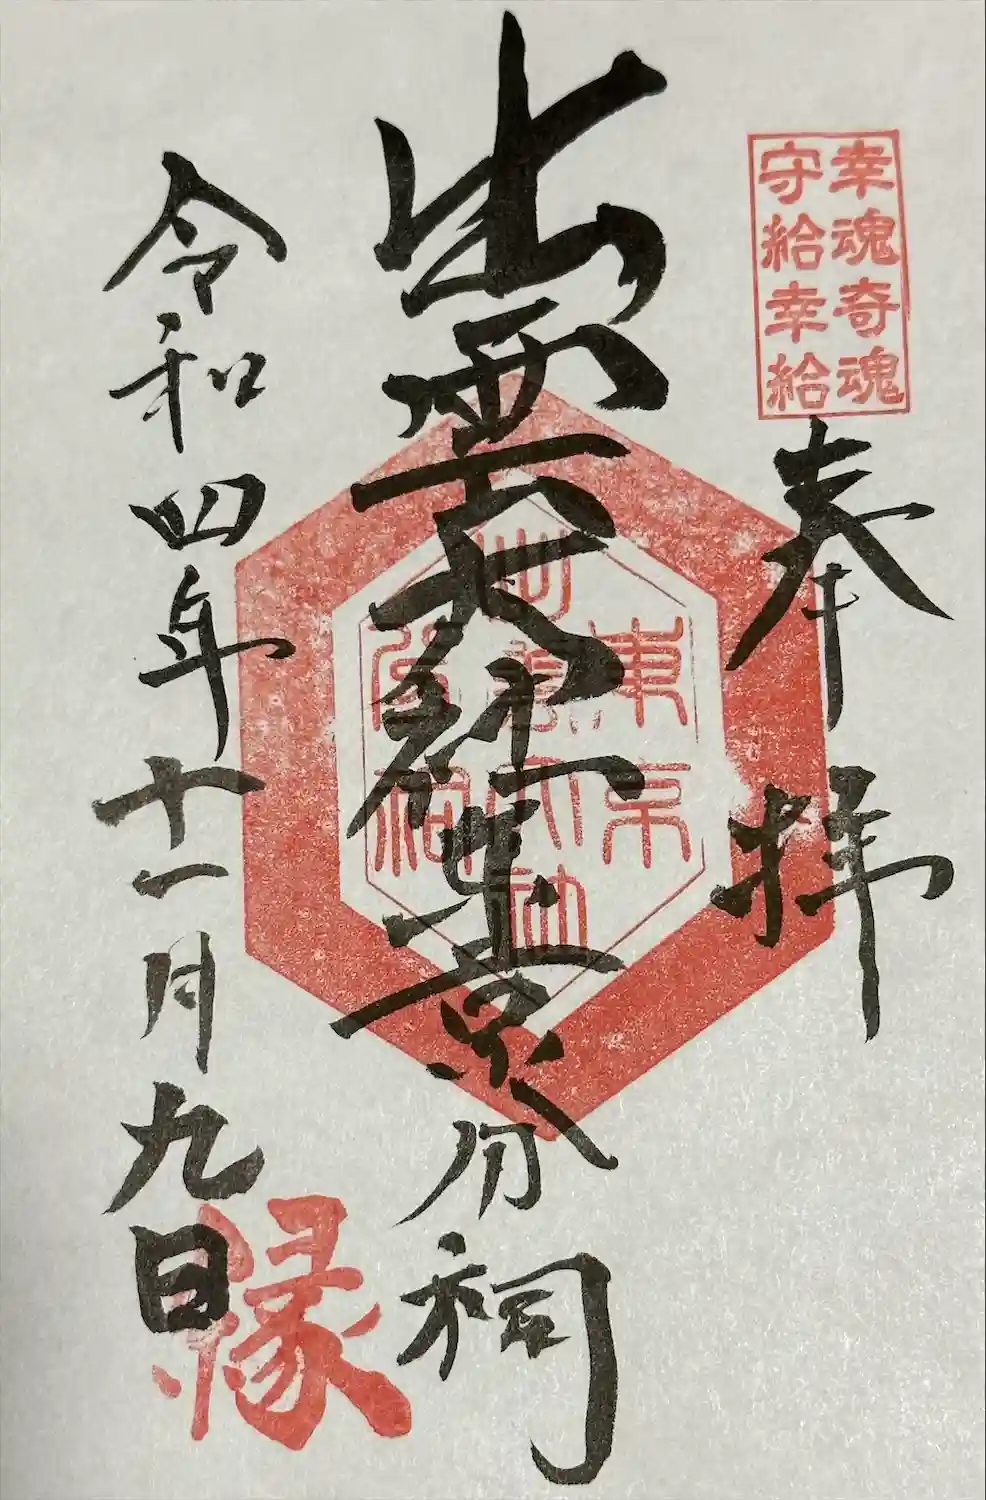 幸魂奇魂
守給幸給
奉拝
出雲大社東京分祠
東京
出雲大社
分祠
令和四年十一月九日
縁